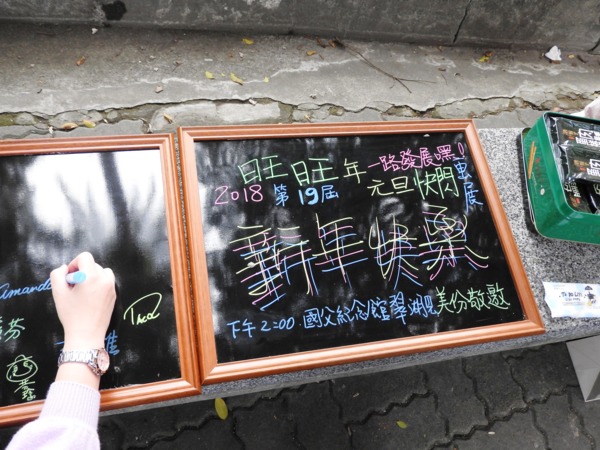 旺旺年 一路發展嘿!
2018 第19屆 元旦快閃
畫展
新年快樂
下午2:00 國父紀念館翠湖 美份敬邀
Amanda
芬
Paco
雄